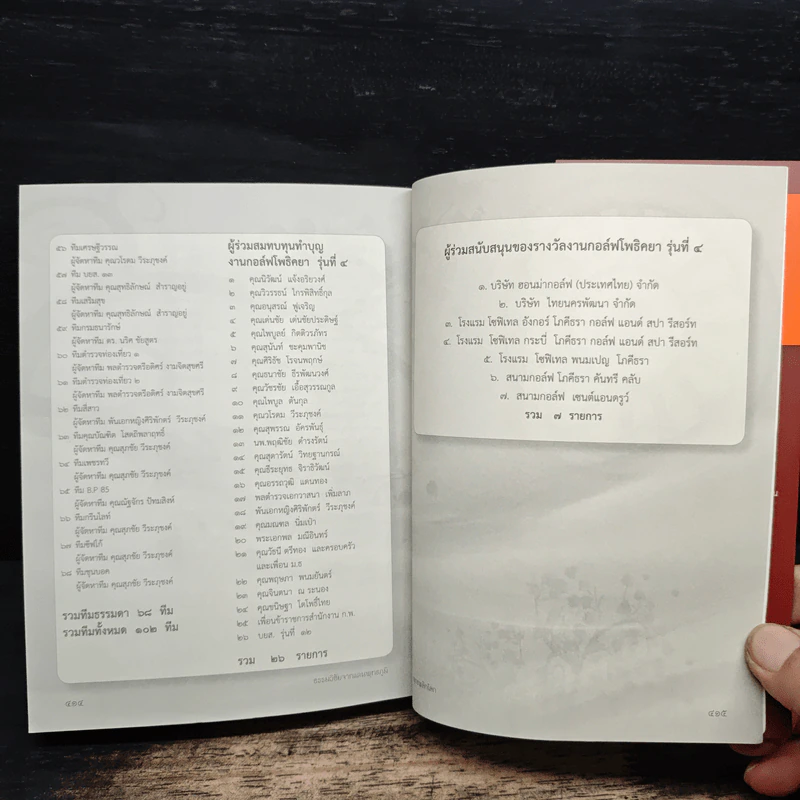 ๕๖ ทีมเศรษฐีวรรณ
ผู้จัดหาทีม คุณวโรดม วีระภุชงค์
๕๗ ทีม บยส. ๑๓
ผู้จัดหาทีม คุณสุทธิลักษณ์ สำราญอยู่
๕๘ ทีมเสริมสุข
ผู้จัดหาทีม คุณสุทธิลักษณ์ สำราญอยู่
๕๙ ทีมกรมธนารักษ์
ผู้จัดหาทีม ดร. นริศ ชัยสูตร
๖๐ ทีมตำรวจท่องเที่ยว ๑
ผู้จัดหาทีม พลตำรวจตรีอดิศร์ งามจิตสุขศรี
๖๑ ทีมตำรวจท่องเที่ยว ๒
ผู้จัดหาทีม พลตำรวจตรีอดิศร์ งามจิตสุขศรี
๖๒ ทีมสีสาว
ผู้จัดหาทีม พันเอกหญิงศิริพักตร์ วีระภุชงค์
๖๓ ทีมคุณบัณฑิต โสตถิพลาฤทธิ์
ผู้จัดหาทีม คุณสุภชัย วีระภุชงค์
๖๔ ทีมเพชรทวี
ผู้จัดหาทีม คุณสุภชัย วีระภุชงค์
๖๕ ทีม B.P.85
ผู้จัดหาทีม คุณณัฐจักร ปัทมสิงห์
๖๖ ทีมกรีนไลท์
ผู้จัดหาทีม คุณสุภชัย วีระภุชงค์
๖๗ ทีมชีฟโก้
ผู้จัดหาทีม คุณสุภชัย วีระภุชงค์
๖๘ ทีมขุนบอค
ผู้จัดหาทีม คุณสุภชัย วีระภุชงค์
รวมทีมธรรมดา ๖๘ ทีม
รวมทีมทั้งหมด ๑๐๒ ทีม
ผู้ร่วมสมทบทุนทำบุญ
งานกอล์ฟโพธิคยา รุ่นที่ ๔
๑ คุณนิวัฒน์ แจ้งอริยวงศ์
๒ คุณวิวรรธน์ ไกรพิสิทธิ์กุล
๓ คุณอนุสรณ์ ฟูเจริญ
๔ คุณเด่นชัย เด่นชัยประดิษฐ์
๕ คุณไพบูลย์ กิตติวรภัทร
๖ คุณสุนันท์ ชะคุมพานิช
๗ คุณศิริธัช โรจนพฤกษ์
๘ คุณธนาชัย ธีรพัฒนวงศ์
๙ คุณวัชรชัย เอื้อสุวรรณกูล
๑๐ คุณไพบูล ตันกุล
๑๑ คุณวโรดม วีระภุชงค์
๑๒ คุณสุพรรณ อัครพันธุ์
๑๓ นพ.พฤฒิชัย ดำรงรัตน์
๑๔ คุณสุดารัตน์ วิทยฐานกรณ์
๑๕ คุณธีระยุทธ จิราธิวัฒน์
๑๖ คุณอรรถวุฒิ แดนทอง
๑๗ พลตำรวจเอกวาสนา เพิ่มลาภ
๑๘ พันเอกหญิงศิริพักตร์ วีระภุชงค์
๑๙ คุณมณฑล นิ่มเป๋า
๒๐ พระเอกพล มณีอินทร์
๒๑ คุณวัธนี ตรีทอง และครอบครัว
และเพื่อน ม.ธ
๒๒ คุณพฤษภา พนมยันตร์
๒๓ คุณจินตนา ณ ระนอง
๒๔ คุณขนิษฐา โตโพธิ์ไทย
๒๕ เพื่อนข้าราชการสำนักงาน ก.พ.
๒๖ บยส. รุ่นที่ ๑๒
รวม ๒๖ รายการ
ธรรมวิจัยจากแดนพุทธภูมิ
๔๑๔
ผู้ร่วมสนับสนุนของรางวัลงานกอล์ฟโพธิคยา รุ่นที่ ๔
๑. บริษัท ฮอนม่ากอล์ฟ (ประเทศไทย) จำกัด
๒. บริษัท ไทยนครพัฒนา จำกัด
๓. โรงแรม โซฟิเทล อังกอร์ โภคีธรา กอล์ฟ แอนด์ สปา รีสอร์ท
๔. โรงแรม โซฟิเทล กระบี่ โภคีธรา กอล์ฟ แอนด์ สปา รีสอร์ท
๕. โรงแรม โซฟิเทล พนมเปญ โภคีธรา
๖. สนามกอล์ฟ โภคีธรา คันทรี คลับ
๗. สนามกอล์ฟ เซนต์แอนดรูว์
รวม ๗ รายการ
๔๑๕